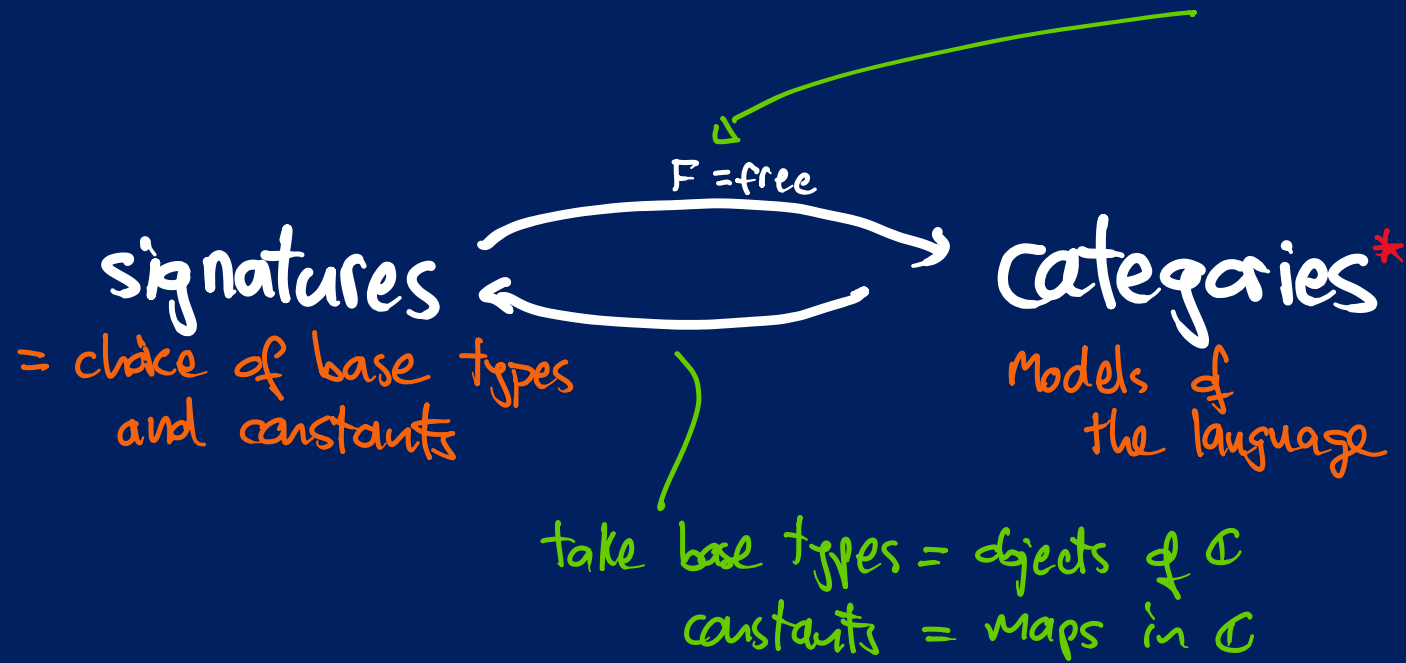 F = free
signatures
categories*
= choice of base types
and constants
Models of
the language
take base types = objects of ℂ
constants = maps in ℂ